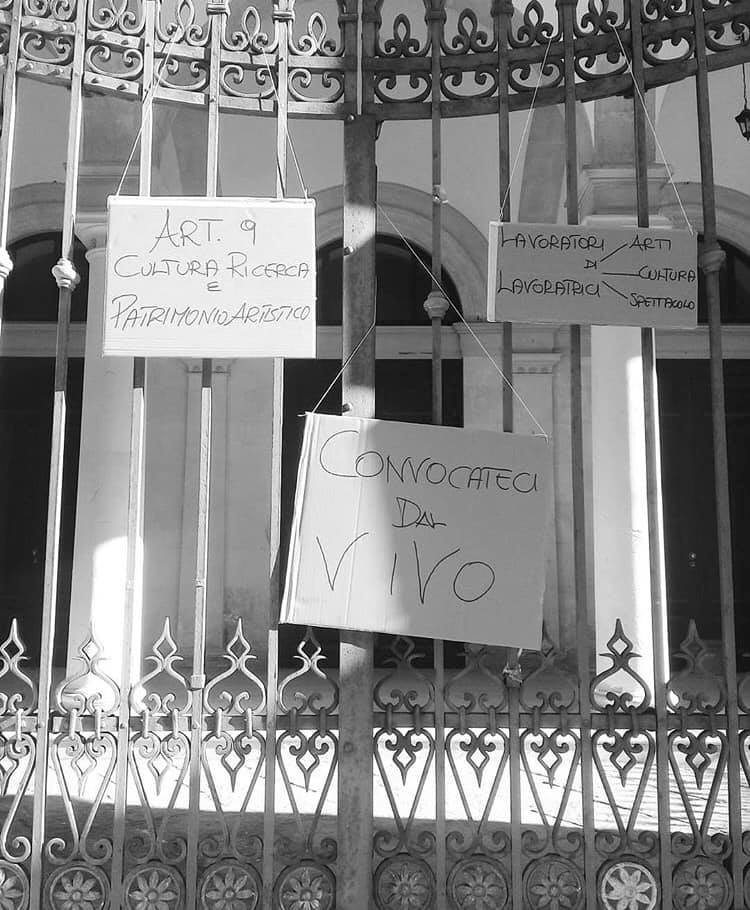 ART. 9
CULTURA RICERCA
E
PATRIMONIO ARTISTICO
LAVORATORI ARTI
DI CULTURA
LAVORATRICI SPETTACOLO
CONVOCATECI
DAL
VIVO